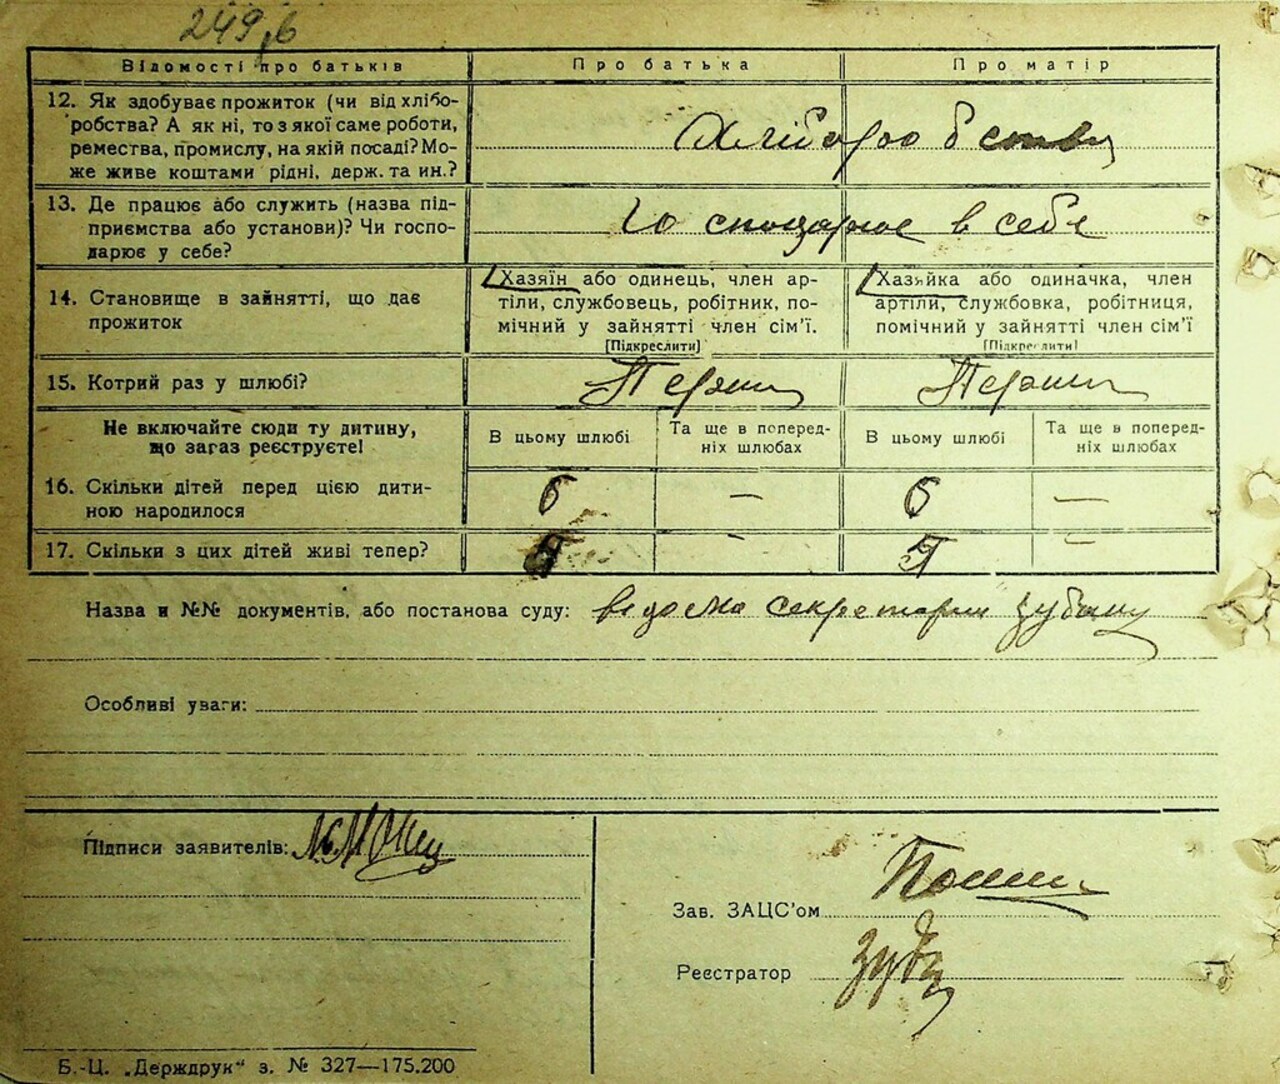 249,6
Відомості про батьків Про батька Про матір
12. Як здобуває прожиток (чи від хлібо-
робства? А як ні, то з якої саме роботи,
ремества, промислу, на якій посаді? Мо-
же живе коштами рідні, держ. та ин.?
Хліборобство
13. Де працює або служить (назва під-
приємства або установи)? Чи госпо-
дарює у себе?
господарює в себе
14. Становище в зайнятті, що дає
прожиток
Хазяїн або одинець, член ар-
тіли, службовець, робітник, по-
мічний у зайнятті член сім'ї.
[Підкреслити]
Хазяйка або одиначка, член
артіли, службовка, робітниця,
помічний у зайнятті член сім'ї
[Підкреслити]
15. Котрий раз у шлюбі? Перший Перший
Не включайте сюди ту дитину,
що загаз реєструєте!
В цьому шлюбі
Та ще в поперед-
ніх шлюбах
В цьому шлюбі
Та ще в поперед-
ніх шлюбах
16. Скільки дітей перед цією дити-
ною народилося
6 — 6 —
17. Скільки з цих дітей живі тепер? - -
Назва и №№ документів, або постанова суду: відома секретарю
Особливі уваги:
Підписи заявителів:
Зав. ЗАЦС'ом
Реєстратор
Б.-Ц. „Держдрук" з. № 327—175.200